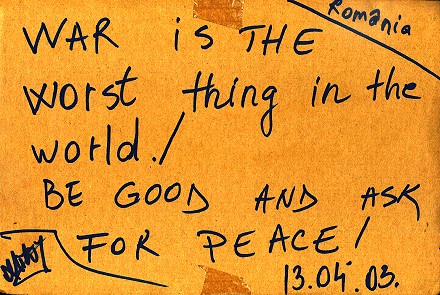 Romania
WAR is THE
worst thing in the
world!
BE GOOD AND ASK
FOR PEACE!
13.04.03.